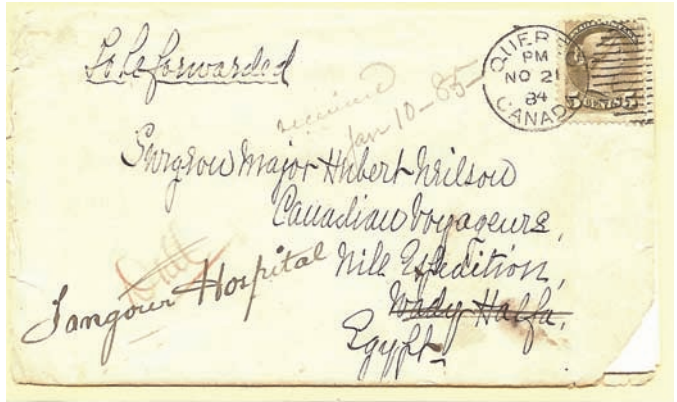 To be forwarded
QUEB
PM
NO 21
84
CANADA
5 CENTS 5
received
Jan 10-85-
Surgeon Major Hubert Neilson
Canadian Voyageurs,
Nile Expedition,
Wady Halfa,
Egypt
Hospital